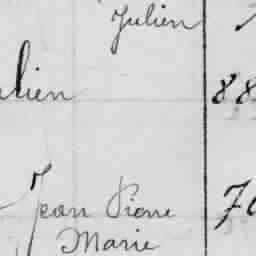 Julien
ulien 88
Jean Pierre 70
Marie